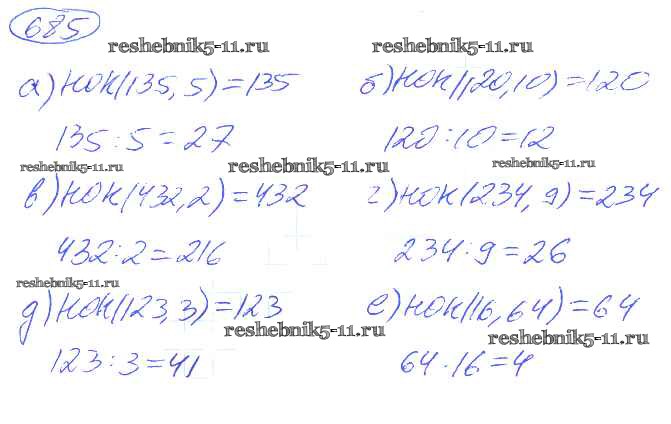 685
reshebnik5-11.ru
а) НОК(135, 5) = 135 б) НОК(120, 10) = 120
135 : 5 = 27 120 : 10 = 12
reshebnik5-11.ru reshebnik5-11.ru reshebnik5-11.ru
в) НОК(432, 2) = 432 г) НОК(234, 9) = 234
432 : 2 = 216 234 : 9 = 26
reshebnik5-11.ru
д) НОК(123, 3) = 123 е) НОК(16, 64) = 64
reshebnik5-11.ru reshebnik5-11.ru
123 : 3 = 41 64 · 16 = 4